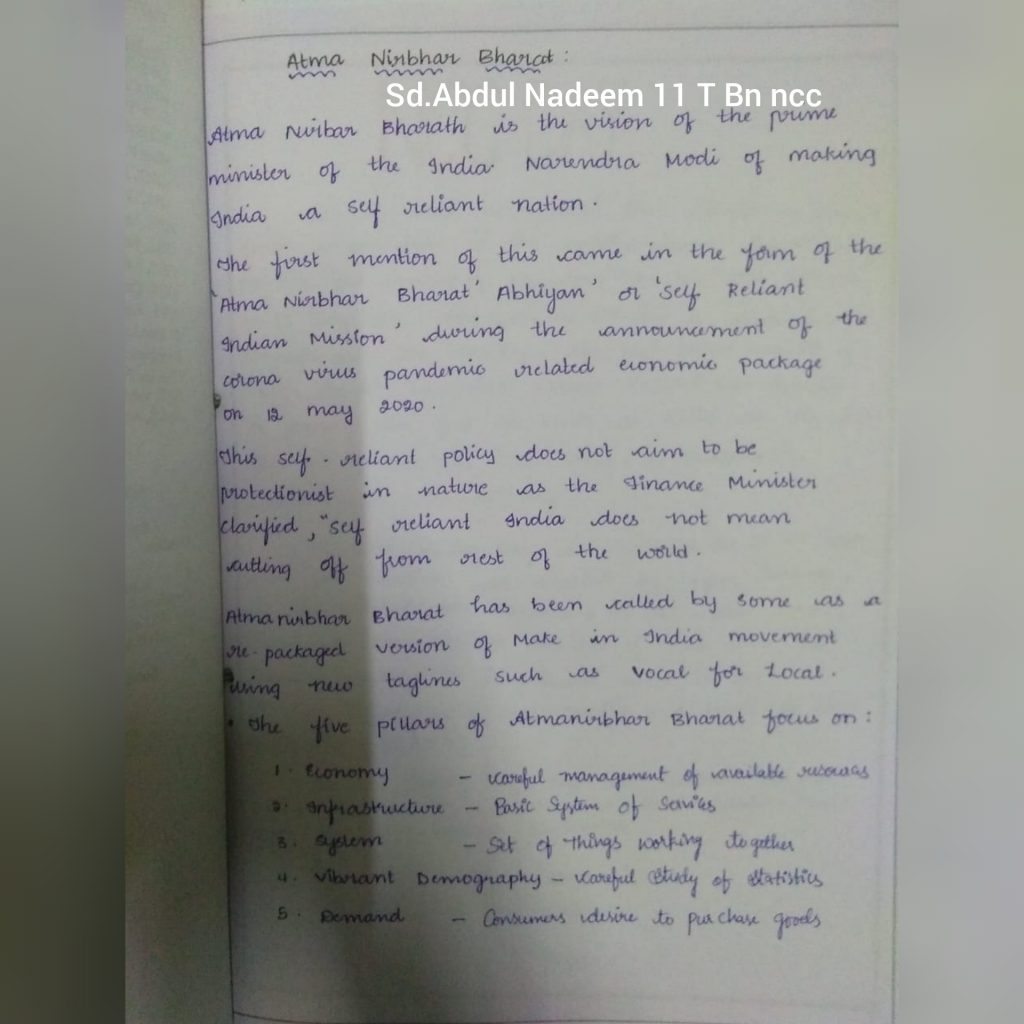 Atma Nirbhar Bharat :
Sd.Abdul Nadeem 11 T Bn ncc
Atma Nirbar Bharath is the vision of the prime
minister of the India. Narendra Modi of making
India a self reliant nation.
The first mention of this came in the form of the
'Atma Nirbhar Bharat' Abhiyan' or 'self Reliant
Indian Mission' during the announcement of the
corona virus pandemic related economic package
on 12 may 2020.
This self-reliant policy does not aim to be
protectionist in nature as the Finance Minister
clarified, "self reliant India does not mean
cutting off from rest of the world.
Atmanirbhar Bharat has been called by some as a
re-packaged version of Make in India movement
using new taglines such as vocal for Local.
• The five pillars of Atmanirbhar Bharat focus on :
1. Economy - careful management of available resources
2. Infrastructure - Basic System of Services
3. System - Set of things working together
4. Vibrant Demography - careful Study of Statistics
5. Demand - Consumers desire to purchase goods